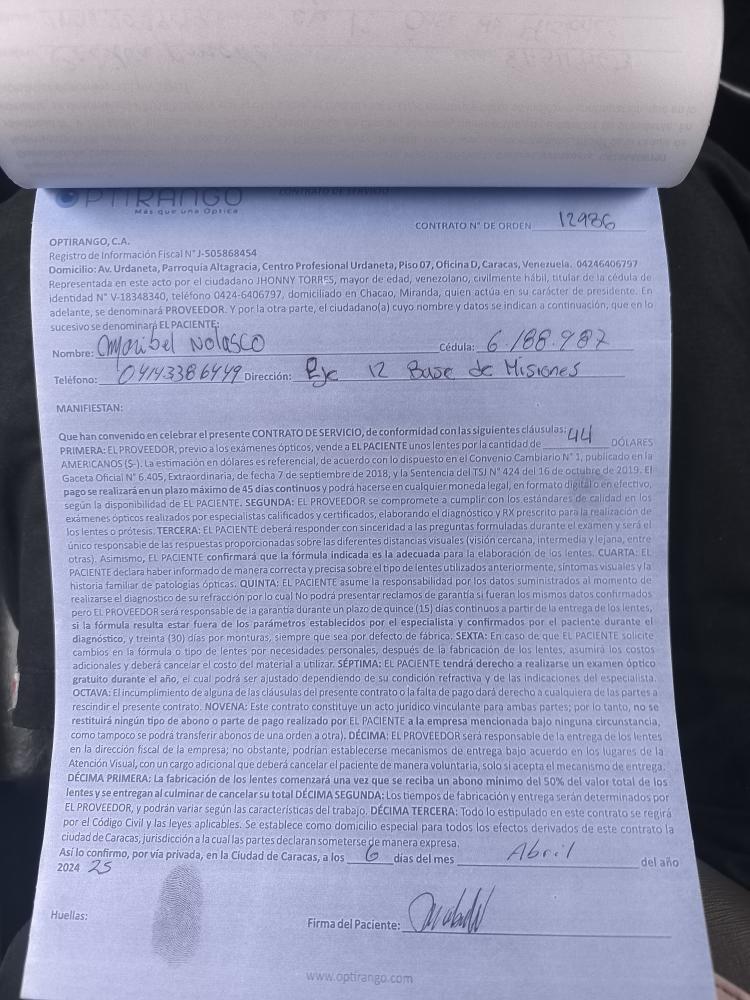 OPTIRANGO CONTRATO DE SERVICIO
Más que una Óptica
CONTRATO N° DE ORDEN 12986
OPTIRANGO, C.A.
Registro de Información Fiscal N° J-505868454
Domicilio: Av. Urdaneta, Parroquia Altagracia, Centro Profesional Urdaneta, Piso 07, Oficina D, Caracas, Venezuela. 04246406797
Representada en este acto por el ciudadano JHONNY TORRES, mayor de edad, venezolano, civilmente hábil, titular de la cédula de
identidad N° V-18348340, teléfono 0424-6406797, domiciliado en Chacao, Miranda, quien actúa en su carácter de presidente. En
adelante, se denominará PROVEEDOR. Y por la otra parte, el ciudadano(a) cuyo nombre y datos se indican a continuación, que en lo
sucesivo se denominará EL PACIENTE:
Nombre: Maribel Nolasco Cédula: 6.188.987
Teléfono: 04143386449 Dirección: Eje 12 Base de Misiones
MANIFIESTAN:
Que han convenido en celebrar el presente CONTRATO DE SERVICIO, de conformidad con las siguientes cláusulas:
PRIMERA: EL PROVEEDOR, previo a los exámenes ópticos, vende a EL PACIENTE unos lentes por la cantidad de 44 DÓLARES
AMERICANOS (S-). La estimación en dólares es referencial, de acuerdo con lo dispuesto en el Convenio Cambiario N° 1, publicado en la
Gaceta Oficial N° 6.405, Extraordinaria, de fecha 7 de septiembre de 2018, y la Sentencia del TSJ N° 424 del 16 de octubre de 2019. El
pago se realizará en un plazo máximo de 45 días continuos y podrá hacerse en cualquier moneda legal, en formato digital o en efectivo,
según la disponibilidad de EL PACIENTE. SEGUNDA: EL PROVEEDOR se compromete a cumplir con los estándares de calidad en los
exámenes ópticos realizados por especialistas calificados y certificados, elaborando el diagnóstico y RX prescrito para la realización de
los lentes o prótesis. TERCERA: EL PACIENTE deberá responder con sinceridad a las preguntas formuladas durante el examen y será el
único responsable de las respuestas proporcionadas sobre las diferentes distancias visuales (visión cercana, intermedia y lejana, entre
otras). Asimismo, EL PACIENTE confirmará que la fórmula indicada es la adecuada para la elaboración de los lentes. CUARTA: EL
PACIENTE declara haber informado de manera correcta y precisa sobre el tipo de lentes utilizados anteriormente, síntomas visuales y la
historia familiar de patologías ópticas. QUINTA: EL PACIENTE asume la responsabilidad por los datos suministrados al momento de
realizarse el diagnostico de su refracción por lo cual No podrá presentar reclamos de garantía si fueran los mismos datos confirmados
pero EL PROVEEDOR será responsable de la garantía durante un plazo de quince (15) días continuos a partir de la entrega de los lentes,
si la fórmula resulta estar fuera de los parámetros establecidos por el especialista y confirmados por el paciente durante el
diagnóstico, y treinta (30) días por monturas, siempre que sea por defecto de fábrica. SEXTA: En caso de que EL PACIENTE solicite
cambios en la fórmula o tipo de lentes por necesidades personales, después de la fabricación de los lentes, asumirá los costos
adicionales y deberá cancelar el costo del material a utilizar. SÉPTIMA: EL PACIENTE tendrá derecho a realizarse un examen óptico
gratuito durante el año, el cual podrá ser ajustado dependiendo de su condición refractiva y de las indicaciones del especialista.
OCTAVA: El incumplimiento de alguna de las cláusulas del presente contrato o la falta de pago dará derecho a cualquiera de las partes a
rescindir el presente contrato. NOVENA: Este contrato constituye un acto jurídico vinculante para ambas partes; por lo tanto, no se
restituirá ningún tipo de abono o parte de pago realizado por EL PACIENTE a la empresa mencionada bajo ninguna circunstancia,
como tampoco se podrá transferir abonos de una orden a otra). DÉCIMA: EL PROVEEDOR será responsable de la entrega de los lentes
en la dirección fiscal de la empresa; no obstante, podrían establecerse mecanismos de entrega bajo acuerdo en los lugares de la
Atención Visual, con un cargo adicional que deberá cancelar el paciente de manera voluntaria, solo si acepta el mecanismo de entrega.
DÉCIMA PRIMERA: La fabricación de los lentes comenzará una vez que se reciba un abono mínimo del 50% del valor total de los
lentes y se entregan al culminar de cancelar su total DÉCIMA SEGUNDA: Los tiempos de fabricación y entrega serán determinados por
EL PROVEEDOR, y podrán variar según las características del trabajo. DÉCIMA TERCERA: Todo lo estipulado en este contrato se regirá
por el Código Civil y las leyes aplicables. Se establece como domicilio especial para todos los efectos derivados de este contrato la
ciudad de Caracas, jurisdicción a la cual las partes declaran someterse de manera expresa.
Así lo confirmo, por vía privada, en la Ciudad de Caracas, a los 6 días del mes Abril del año
2024 25
Huellas:
Firma del Paciente:
www.optirango.com